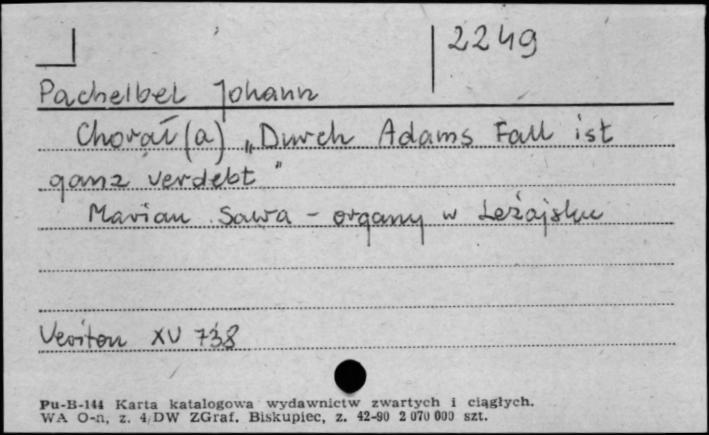 2249
Pachelbel Johann
Chorał (a) „Durch Adams Fall ist
ganz verdebt"
Marian Sawa - organy w Leżajsku
Veriton XV 738
Pu-B-144 Karta katalogowa wydawnictw zwartych i ciągłych.
WA O-n, z. 4/DW ZGraf. Biskupiec, z. 42-90 2 070 000 szt.